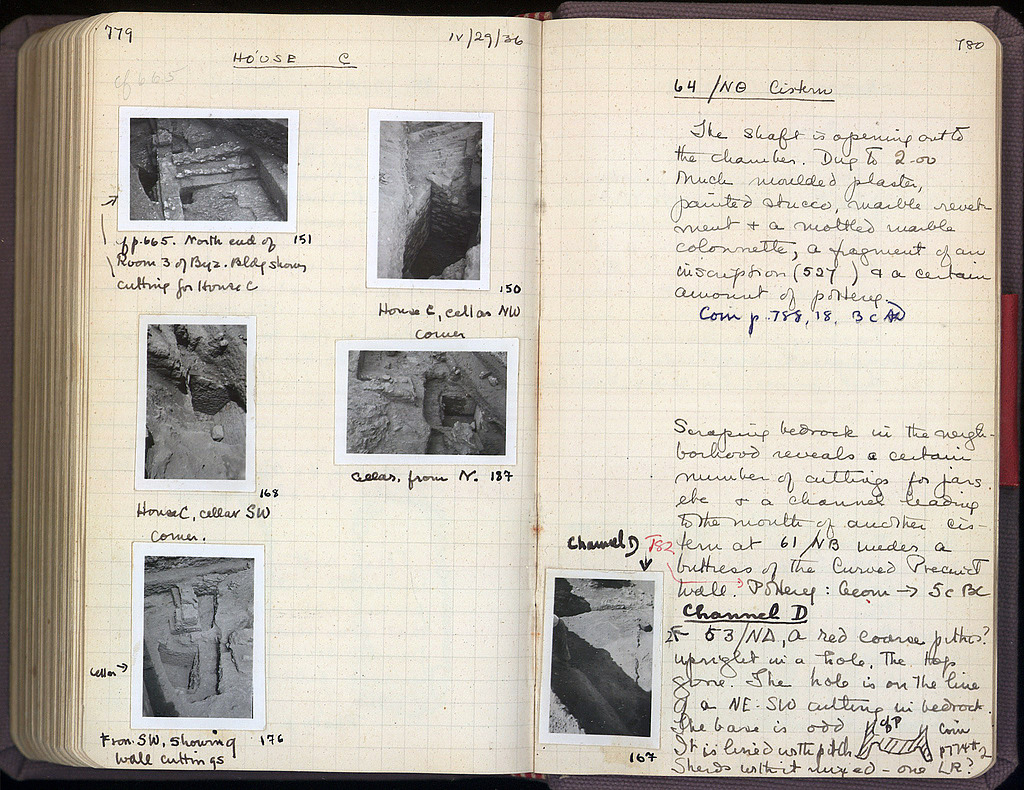 779
IV/29/36
HOUSE C
cf 665
cf p. 665. North end of 151
Room 3 of Byz. Bldg shows
cutting for House C
150
House C, cellar NW
corner
168
House C, cellar SW
corner.
cellar, from N. 187
cellar →
From SW, showing 176
wall cuttings
780
64/NΘ Cistern
The shaft is opening out to
the chamber. Dug to 2.00
Much moulded plaster,
painted stucco, marble revet-
ment + a mottled marble
colonnette, a fragment of an
inscription (527 ) + a certain
amount of pottery
Coin p. 788, 18. 3 c AD
Scraping bedrock in the neigh-
borhood reveals a certain
number of cuttings for jars
etc + a channel leading
to the mouth of another cis-
tern at 61/NB under a
buttress of the Curved Precinct
wall. Pottery: Geom → 5c BC
Channel D T82
Channel D
53/NΔ, a red coarse pithos?
upright in a hole. The top
gone. The hole is on the line
of a NE-SW cutting in bedrock.
The base is odd
It is lined with pitch
cf P
Coin
Sherds with it mixed – one LR?
167